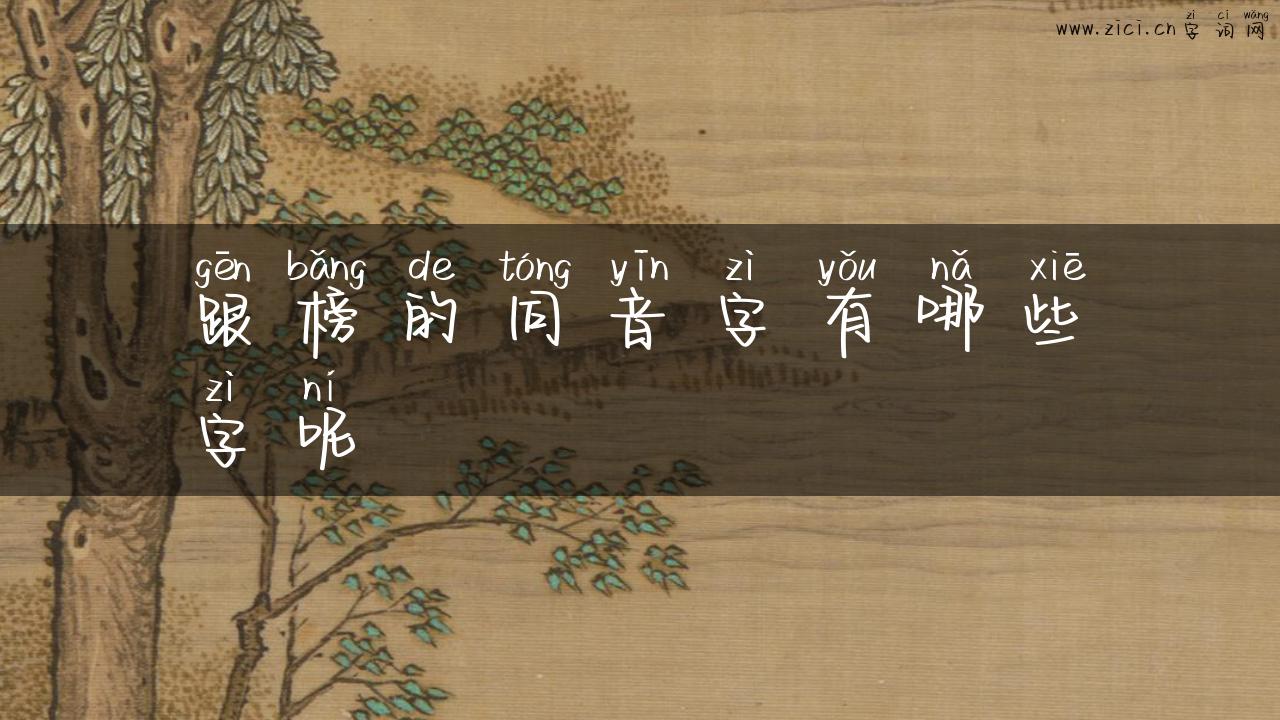 zì cí wǎng
www.zici.cn 字词网
gēn bǎng de tóng yīn zì yǒu nǎ xiē
跟榜的同音字有哪些
zì ní
字呢